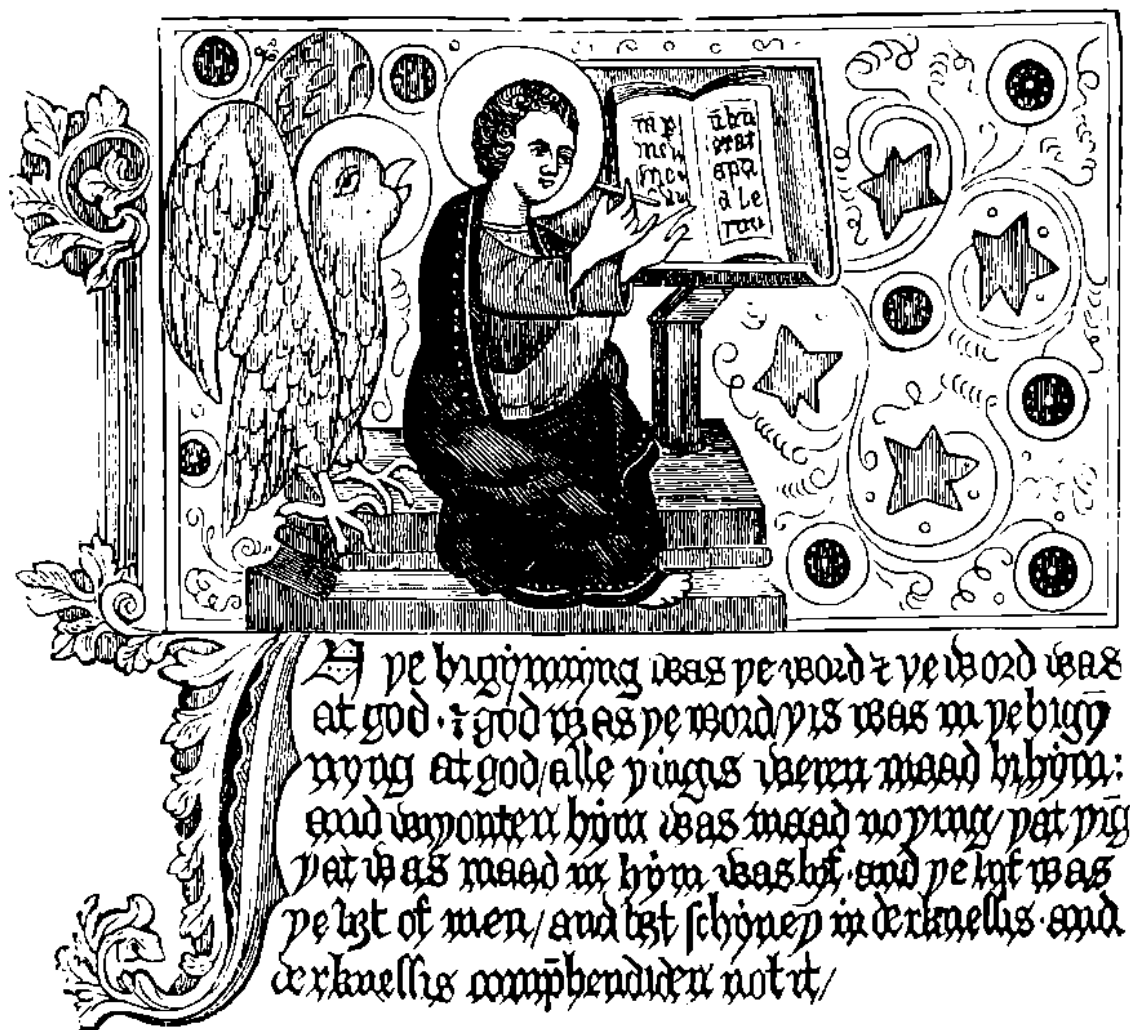 In ye bigynnyng was ye word ⁊ ye word was
at god · ⁊ god was ye word/ yis was in ye bigȳ
nyng at god/ alle yingis weren maad bi hym:
and wiyouten hym was maad no ying/ yat yīg
yat was maad in hym was lyf · and ye lyf was
ye liȝt of men/ and liȝt schyney in derknessis · and
derknessis comp̄hendiden not it/